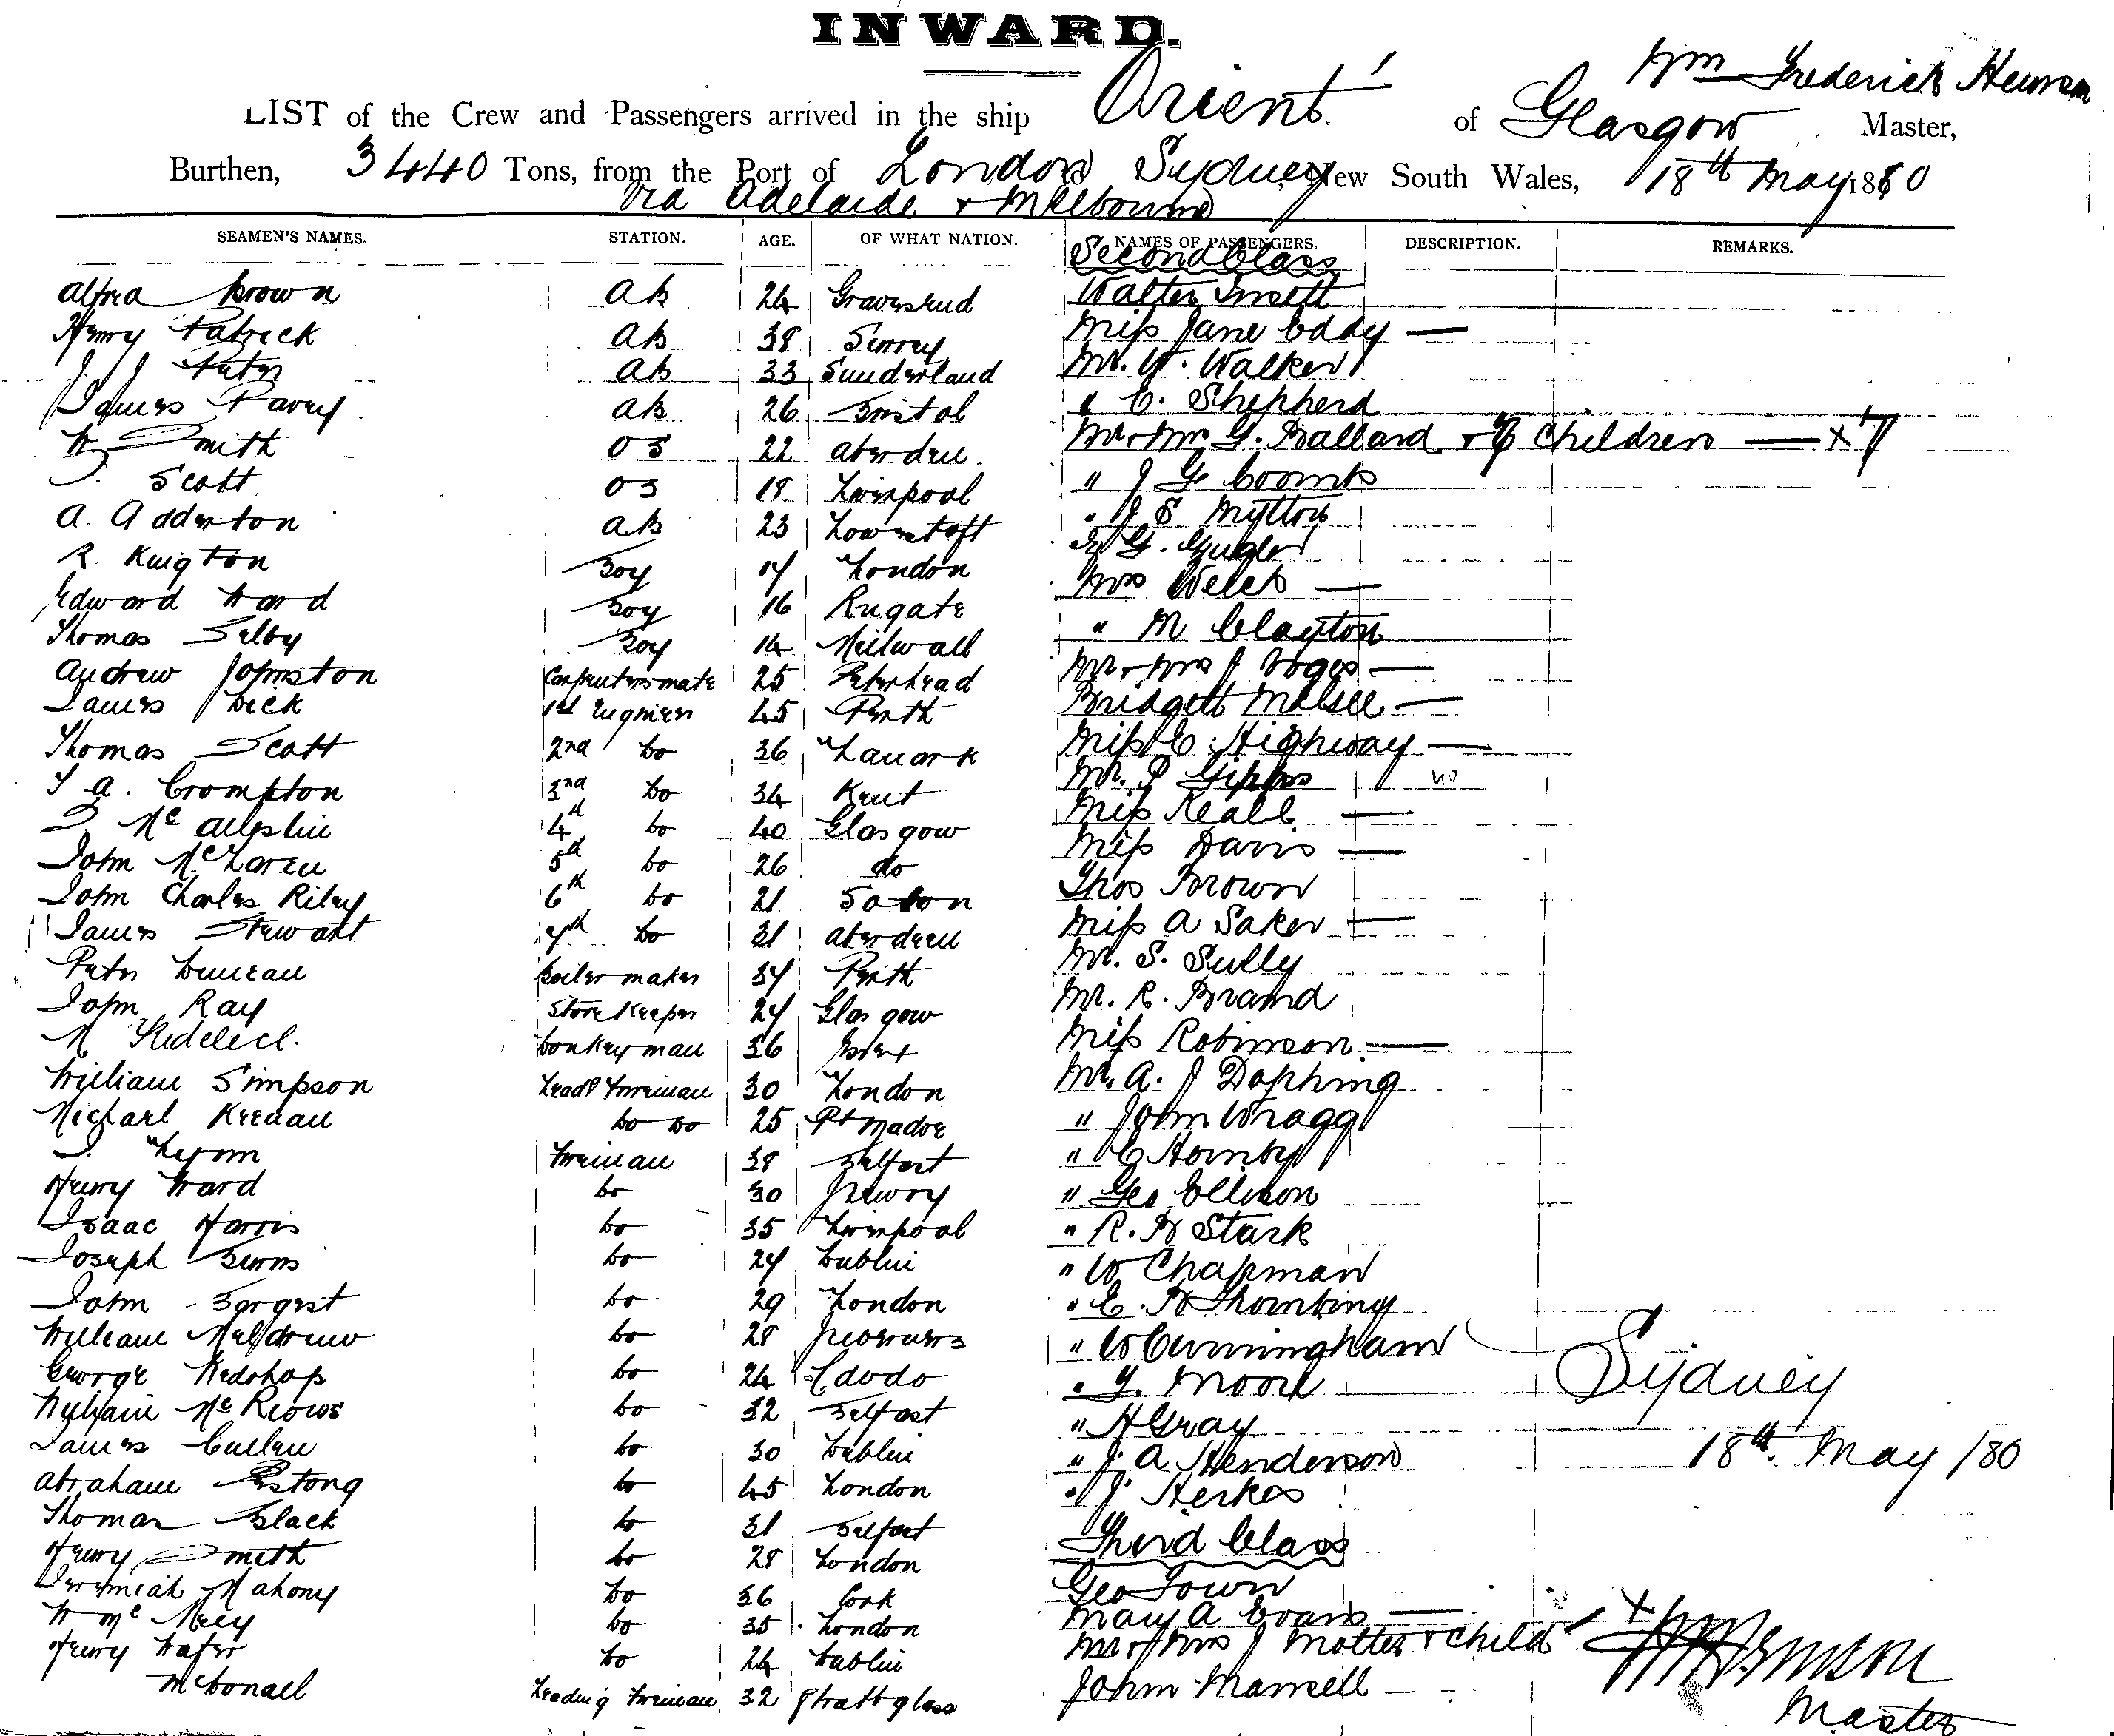 INWARD.
Wm Frederick Hewson
LIST of the Crew and Passengers arrived in the ship Orient of Glasgow, Master,
Burthen, 3440 Tons, from the Port of London Sydney, New South Wales, 18th May 1880
Via Adelaide & Melbourne
SEAMEN'S NAMES. STATION. AGE. OF WHAT NATION. NAMES OF PASSENGERS. DESCRIPTION. REMARKS.
Second Class
Alfred Brown AB 24 Gravesend Walter
Henry Patrick AB 38 Surrey Miss Jane Eddy —
Peter AB 33 Sunderland Mr. W. Walker
James Pavey AB 26 Bristol " C. Shepherd
W Smith OS 22 Aberdeen Mr & Mrs G. Ballard & 7 Children — x 7
Scott OS 18 Liverpool " J G Coombs
A. Adderton AB 23 Lowestoft " J S Mytton
R. Knigton Boy 17 London G. Gugler
Edward Ward Boy 16 Rugate Mrs Welch —
Thomas Selby Boy 14 Millwall " M Clayton
Andrew Johnston Carpenters mate 25 Peterhead Mr & Mrs J Voges —
James Dick 1st Engineer 45 Perth Bridgett —
Thomas Scott 2nd Do 36 Lanark Miss E. Highway —
T A. Crompton 3rd Do 34 Kent Mr. P Gipps
Mc Alpine 4th Do 40 Glasgow Miss Keall —
John McLaren 5th Do 26 do Miss Davis —
John Charles Riley 6th Do 21 Soton Thos Brown
James Stewart 7th Do 31 Aberdeen Miss A Saker —
Peter Duncan Boiler maker 37 Perth Mr. S. Sully
John Ray Store Keeper 27 Glasgow Mr. R. Brand
M Donkeyman 36 Essex Miss Robinson —
William Simpson Leadg Fireman 30 London Mr. A. J Dophing
Michael Keenan Do Do 25 Pt Madoc " John Wragg
Lynn Fireman 38 Belfast " C Hornby
Henry Ward Do 30 Newry " Geo Ellison
Isaac Harris Do 35 Liverpool " R. W Stark
Joseph Burns Do 27 Dublin " W Chapman
John Sargest Do 29 London " E. W Thornbing
William Meldrum Do 28 " W Cunningham
George Redshap Do 24 " Moore Sydney
William Do 32 Belfast " H Gray
James Cullen Do 30 Dublin " J. A Henderson 18th May /80
Abraham Do 45 London " J. Herkes
Thomas Black Do 31 Belfast
Third Class
Henry Smith Do 28 London Geo Town
Jeremiah Mahony Do 36 Cork Mary A Evans —
W Mc Do 35 London Mr & Mrs J Motter & Child x
Henry Wafer Do 24 Dublin John Mansell —
McDonall Leading Fireman 32 Strathglass
Master